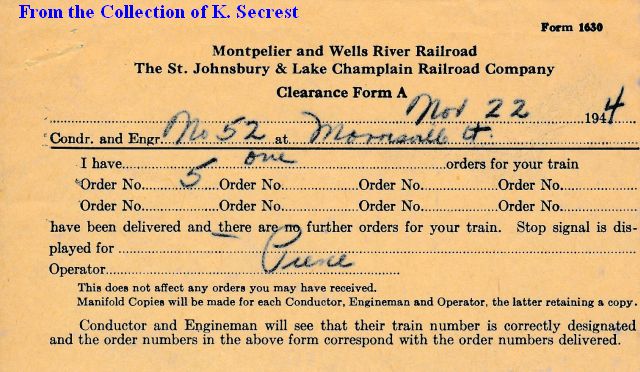 From the Collection of K. Secrest
Form 1630
Montpelier and Wells River Railroad
The St. Johnsbury & Lake Champlain Railroad Company
Clearance Form A
Nov 22 1944
Condr. and Engr. No 52 at Morrisville Vt.
I have one orders for your train
Order No. 5 Order No. Order No. Order No.
Order No. Order No. Order No. Order No.
have been delivered and there are no further orders for your train. Stop signal is dis-
played for
Operator Pierce
This does not affect any orders you may have received.
Manifold Copies will be made for each Conductor, Engineman and Operator, the latter retaining a copy.
Conductor and Engineman will see that their train number is correctly designated
and the order numbers in the above form correspond with the order numbers delivered.